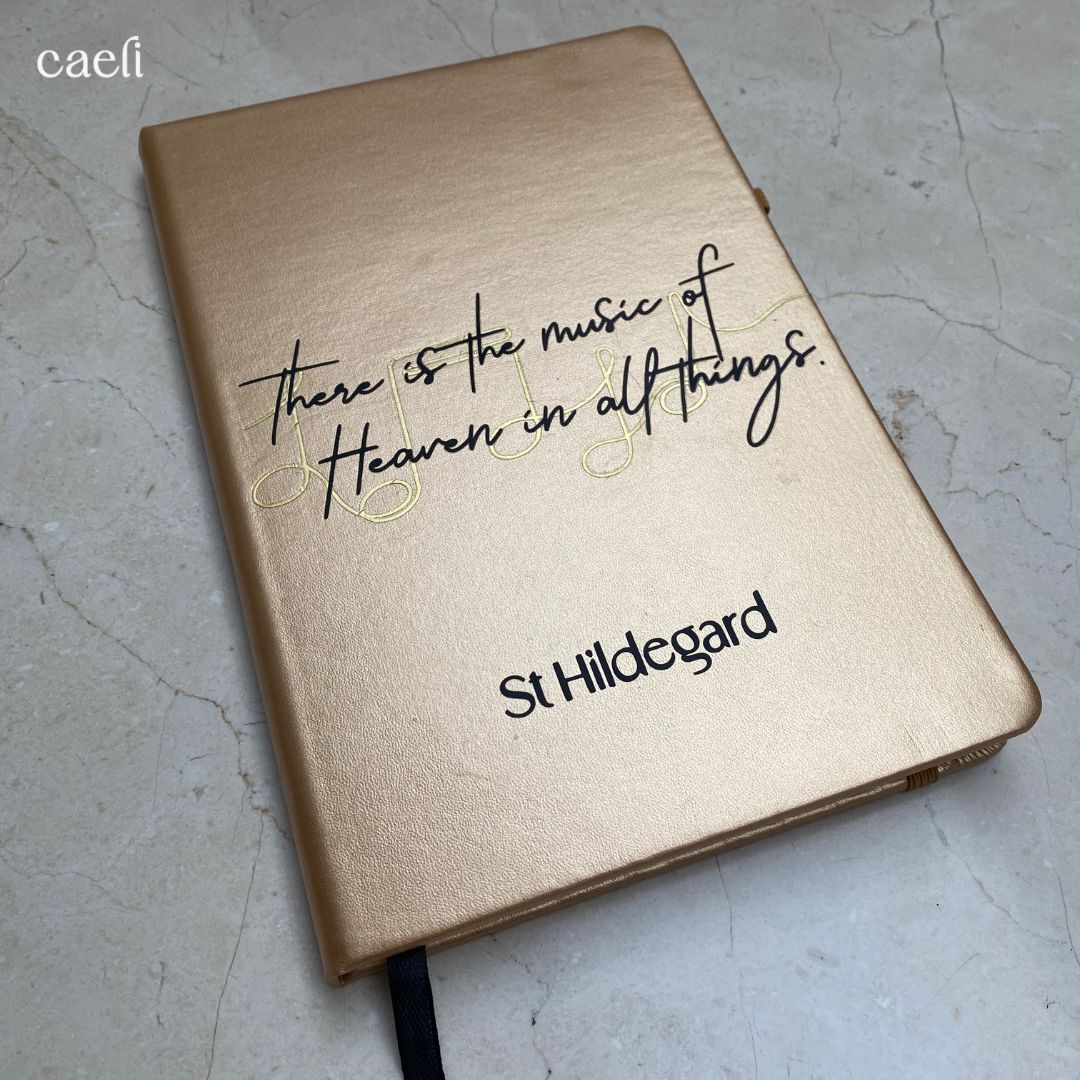 caeli
there is the music of
Heaven in all things.
St Hildegard